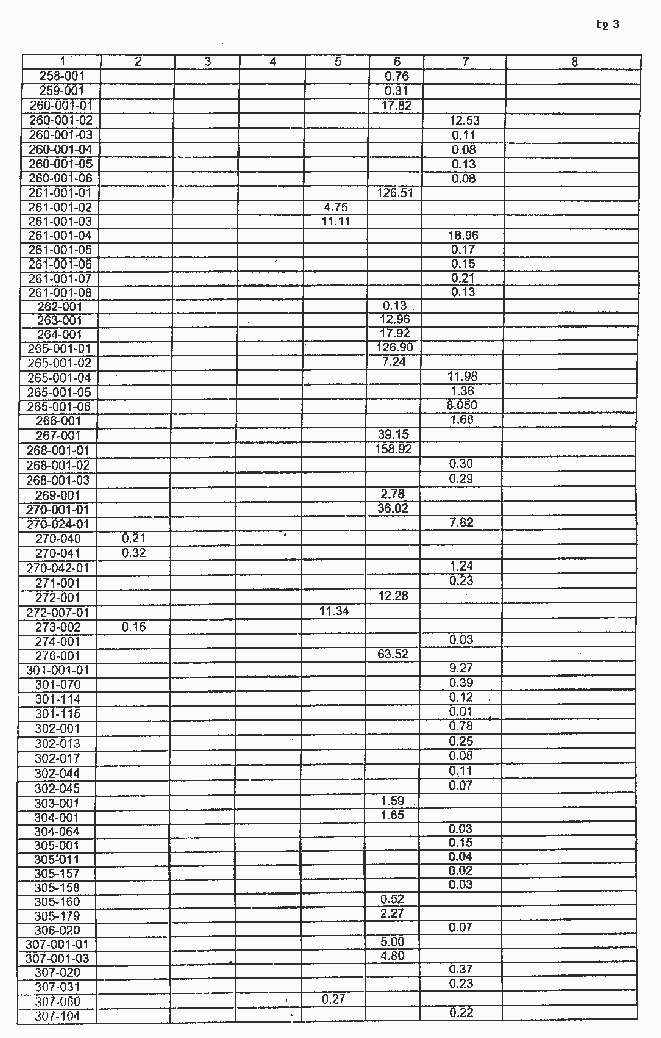 tg 3
1 2 3 4 5 6 7 8
258-001 0.76
259-001 0.31
260-001-01 17.82
260-001-02 12.53
260-001-03 0.11
260-001-04 0.08
260-001-05 0.13
260-001-06 0.08
261-001-01 126.51
261-001-02 4.75
261-001-03 11.11
261-001-04 18.96
261-001-05 0.17
261-001-06 0.15
261-001-07 0.21
261-001-08 0.13
262-001 0.13
263-001 12.96
264-001 17.92
265-001-01 126.90
265-001-02 7.24
265-001-04 11.98
265-001-05 1.36
265-001-06 8.050
266-001 1.66
267-001 39.15
268-001-01 158.92
268-001-02 0.30
268-001-03 0.29
269-001 2.78
270-001-01 36.02
270-024-01 7.82
270-040 0.21
270-041 0.32
270-042-01 1.24
271-001 0.23
272-001 12.28
272-007-01 11.34
273-002 0.16
274-001 0.03
276-001 63.52
301-001-01 9.27
301-070 0.39
301-114 0.12
301-115 0.01
302-001 0.78
302-013 0.25
302-017 0.08
302-044 0.11
302-045 0.07
303-001 1.59
304-001 1.65
304-064 0.03
305-001 0.15
305-011 0.04
305-157 0.02
305-158 0.03
305-160 0.52
305-179 2.27
306-020 0.07
307-001-01 5.00
307-001-03 4.80
307-020 0.37
307-031 0.23
307-060 0.27
307-104 0.22